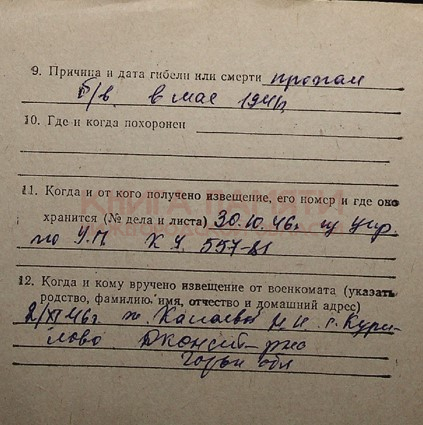 9. Причина и дата гибели или смерти пропал
б/в. в мае 1941г
10. Где и когда похоронен
11. Когда и от кого получено извещение, его номер и где оно
хранится (№ дела и листа) 30.10.46г из Упр.
по У.П ХУ. 557-81
12. Когда и кому вручено извещение от военкомата (указать
родство, фамилию, имя, отчество и домашний адрес)
2/XI 46г
Горьк обл